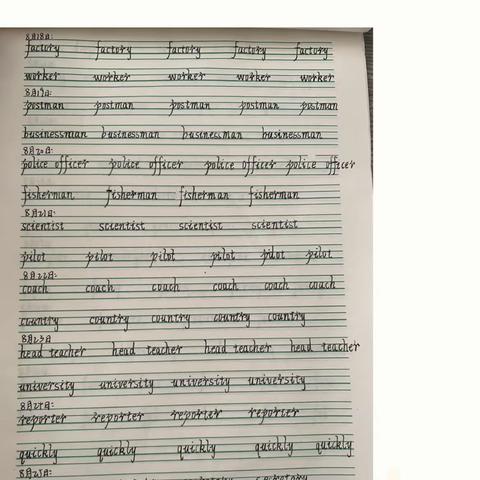 8月18日:
factory factory factory factory factory
worker worker worker worker worker
8月19日:
postman postman postman postman postman
businessman businessman businessman businessman
8月20日:
police officer police officer police officer police officer
fisherman fisherman fisherman fisherman
8月21日:
scientist scientist scientist scientist
pilot pilot pilot pilot pilot pilot
8月22日:
coach coach coach coach coach coach
country country country country country
8月23日
head teacher head teacher head teacher head teacher
university university university university
8月24日:
reporter reporter reporter reporter
quickly quickly quickly quickly quickly
8月25日: